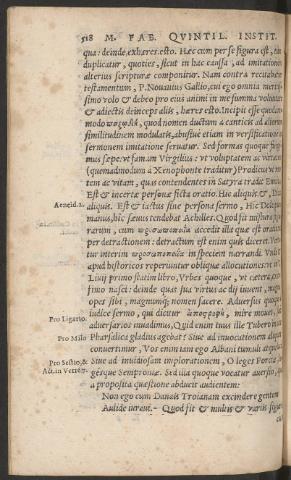 518 M. FAB. QVINTIL. INSTIT.
qua: deinde, exhæres esto. Hæc cum per se figura est, tum
duplicatur, quoties, sicut in hac caussa, ad imitationem
alterius scripturæ componitur. Nam contra recitabatur
testamentum, P. Nouanius Gallio, cui ego omnia meritis-
simo volo & debeo pro eius animi in me summa voluntate
& adiectis deinceps aliis, hæres esto. Incipit esse quodam-
modo παρῳδή, quod nomen ductum a canticis ad aliorum
similitudinem modulatis, abusiue etiam in versificationis ac
sermonem imitatione seruatur. Sed formas quoque
mus sæpe: vt famam Virgilius: vt voluptatem ac virtutem
(quemadmodum a Xenophonte traditur) Prodicus
tem ac vitam, quas contendentes in Satyra tradit Ennius
Est & incertæ personæ ficta oratio. Hic aliquis &,
Aeneid.2. aliquis. Est & iactus sine persona sermo, Hic Dolopum
manus, hic sæuus tendebat Achilles. Quod fit mistura figu-
rarum, cum προσωποποιΐᾳ accedit illa quæ est orationis
per detractionem: detractum est enim quis diceret. Verti-
tur interim προσωποποιΐα in speciem narrandi. Vnde
apud historicos reperiuntur obliquæ allocutiones: vt in
Liuij primo statim libro, Vrbes quoque, vt cætera, ex in-
fimo nasci: deinde quas sua virtus ac dij iuuent, magnas
opes sibi, magnumque nomen facere. Aduersus quoque
iudice sermo, qui dicitur ἀποστροφή, mire mouet, siue
Pro Ligario. aduersarios inuadimus, Quid enim tuus ille Tubero in acie
Pro Milo Pharsalica gladius agebat? Siue ad inuocationem aliquam
conuertimur, Vos enim iam ego Albani tumuli atque
Pro Sestio, & Siue ad inuidiosam implorationem, O leges Porciæ, le-
Act. in Verrẽ 7. gesque Semproniæ. Sed illa quoque vocatur auersio, quæ
a proposita quæstione abducit audientem:
Non ego cum Danais Troianam excindere gentem
Aulide iuraui.- Quod fit & multis & variis figuris